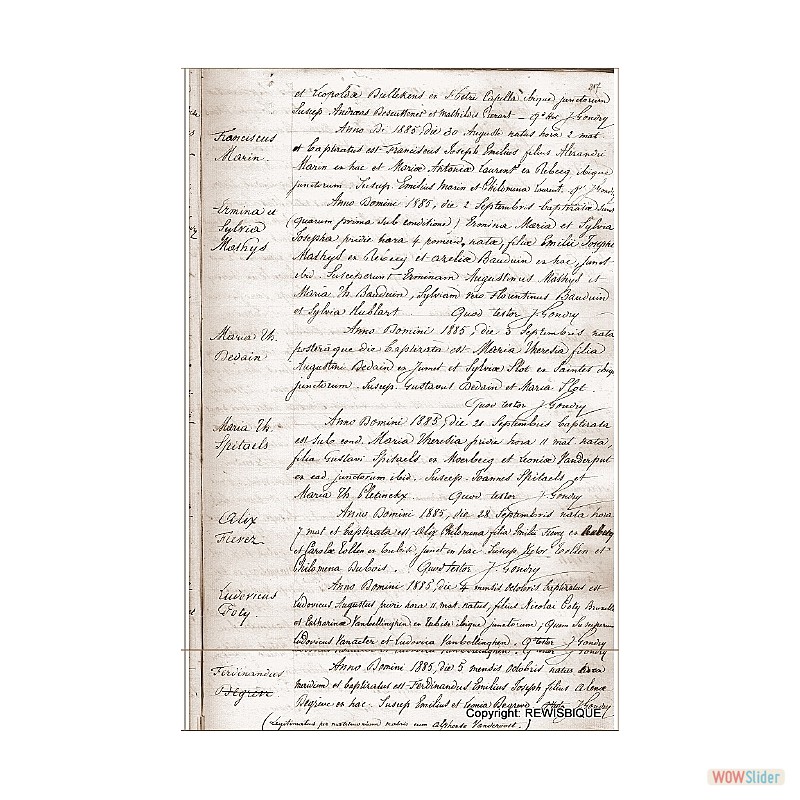 217
et Leopoldæ Bullekens ex St Petri Capellâ ibique junctorum
Suscep. Andreas et Mathildis Evrart - J. Gondry
Franciscus
Marin.
Anno D. 1885, die 30 Augusti natus hora 2 mat
et baptizatus est Franciscus Joseph Emilius filius Alexandri
Marin ex hac et Mariæ Antoniæ Laurent ex Rebecq ibique
junctorum. Suscep. Emilius Marin et Philomena Laurent. J. Gondry
Ermina et
Sylvia
Mathys
Anno Domini 1885, die 2 Septembris baptizatæ sunt
(quarum prima sub conditione) Ermina Maria et Sylvia
Josepha pridie hora 4 pomerid. natæ, filiæ Emilii Joseph
Mathys ex Rebecq et Aureliæ Bauduin ex hac, junct
ibid. Susceperunt Erminam Augustinus Mathys et
Maria Th. Bauduin, Sylviam vero Florentinus Bauduin
et Sylvia Hublart. Quod testor J. Gondry
Maria Th.
Bedain
Anno Domini 1885, die 5 Septembris nata
posteraque die baptizata est Maria Theresia filia
Augustini Bedain ex Jumet et Sylviæ Flot ex Saintes ibiq
junctorum. Suscep. Gustavus Bedain et Maria Flot.
Quod testor J. Gondry
Maria Th.
Spitaels
Anno Domini 1885, die 21 Septembris baptizata
est sub cond. Maria Theresia pridie hora 11 mat. nata,
filia Gustavi Spitaels ex Moerbecq et Leoniæ Vanderput
ex ead. junctorum ibid. Suscep. Joannes Spitaels et
Maria Th. Pletinckx. Quod testor J. Gondry
Alix
Fiever
Anno Domini 1885, die 28 Septembris nata hora
7 mat et baptizata est Alix Philomena filia Emilii Fievez ex Rebecq
et Carolæ Tollen ex Tubeek, junct in hac. Suscep. Victor Toollen et
Philomena Dubois. Quod testor J. Gondry
Ludovicus
Foly.
Anno Domini 1885, die 4 mensis octobris baptizatus est
Ludovicus Augustus pridie hora 11 mat. natus, filius Nicolai Foly
et Catharinæ Vanbellinghen ex Tubise ibique junctorum; Quem susceperunt
Ludovicus Vanacter et Ludovica Vanbellinghen. testor J. Gondry
Ferdinandus
Degrève
Anno Domini 1885, die 5 mensis octobris natus
meridiem et baptizatus est Ferdinandus Emilius Joseph filius
Degreve ex hac. Suscep Emilius et Leonia Degreve. J. Gondry
(Legitimatus per matrimonium matris cum Alphonso Vandervoort.)
Copyright: REWISBIQUE
WOWSlider